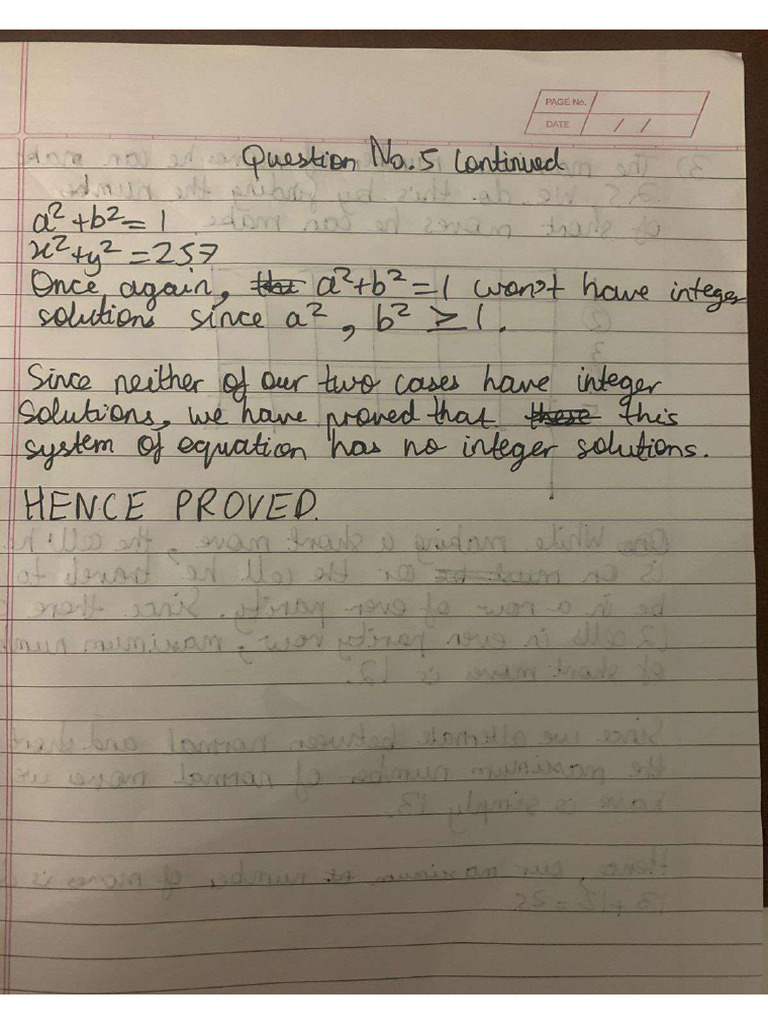 PAGE No.
DATE / /
Question No. 5 Continued
a² + b² = 1
x² + y² = 257
Once again, the a² + b² = 1 won't have integer
solutions since a², b² ≥ 1.
Since neither of our two cases have integer
solutions, we have proved that these this
system of equation has no integer solutions.
HENCE PROVED.